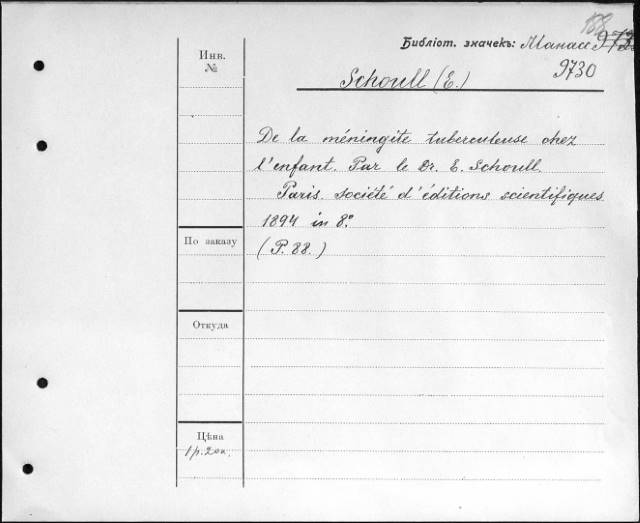 188
Библіот. значекъ: Manace
9730
Schoull (E.)
Инв.
№
De la méningite tuberculeuse chez
l'enfant. Par le Dr. E. Schoull.
Paris. Société d'éditions scientifiques
1894 in 8º.
(P. 88.)
По заказу
Откуда
Цѣна
1 р. 20 к.